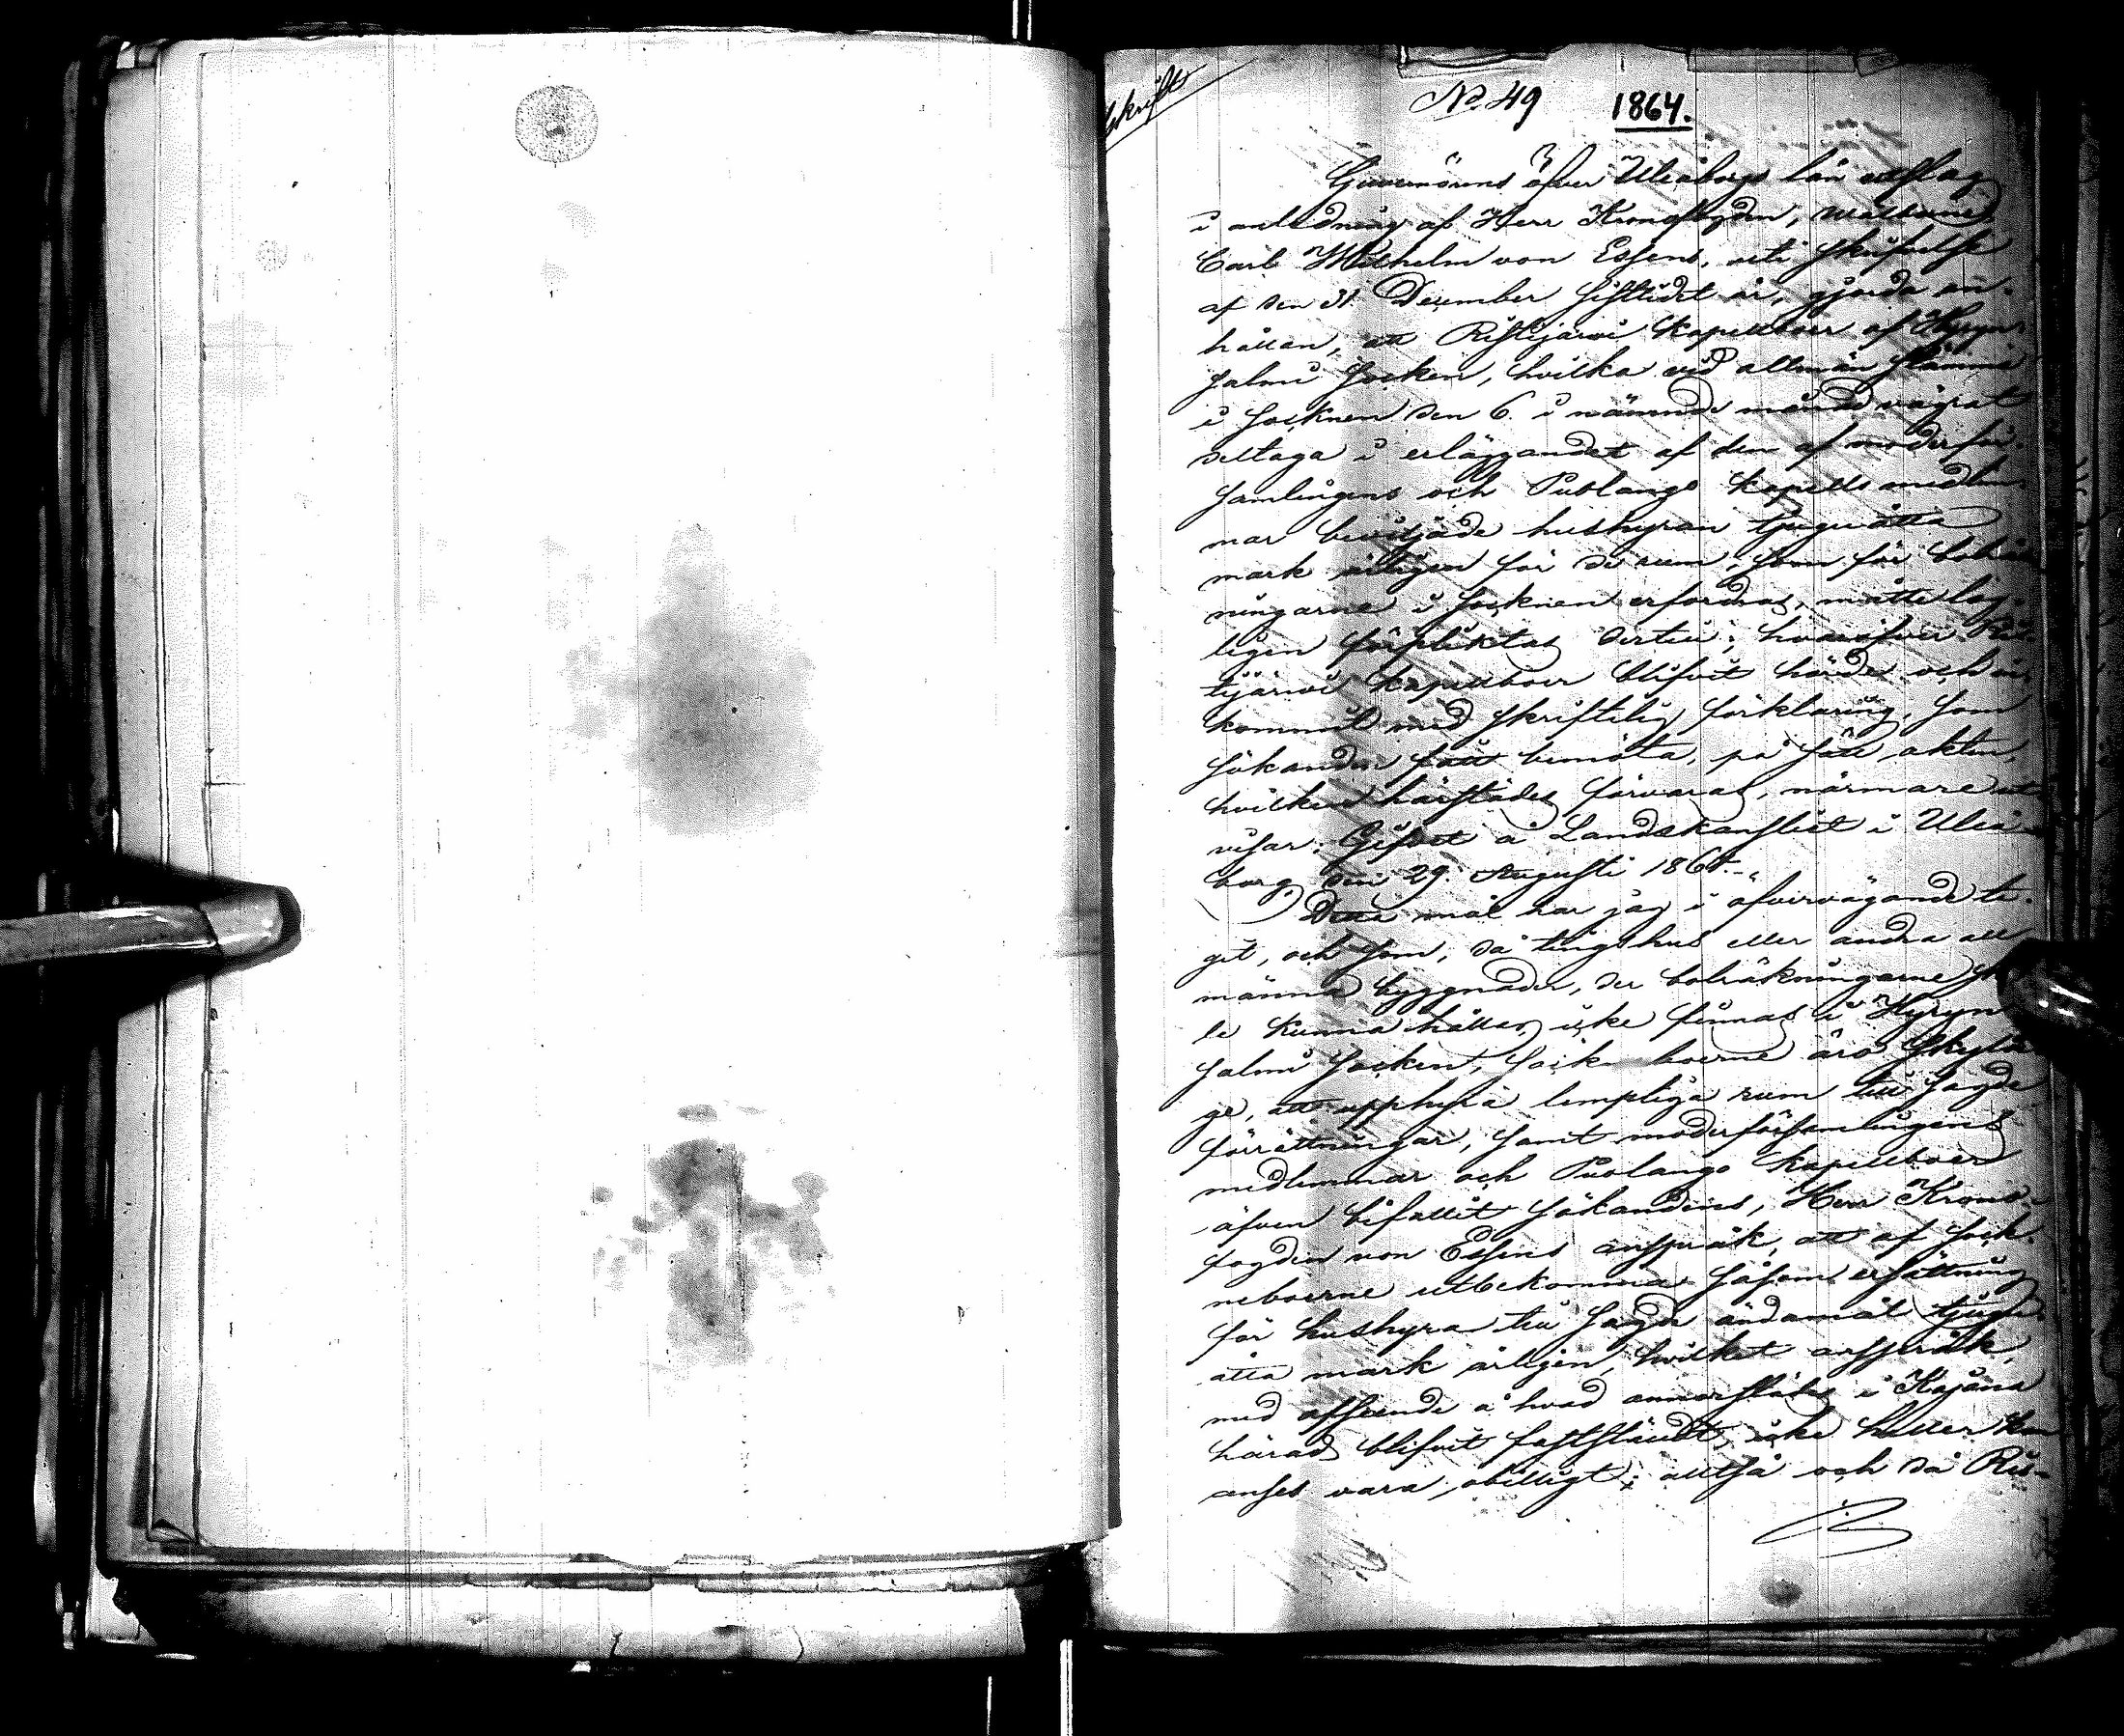 Afskrift
No. 49 1864.
Guvernörens öfver Uleåborgs län utslag
i anledning af Herr Kronofogden, wälborne
Carl Wilhelm von Essens, uti skrifvelse
af den 31 December sistlidet år, gjorda an-
hållan, att Ristijärvi Kapellboer af Hyryn-
salmi Socken, hvilka vid allmän stämma
i Socknen den 6. i nämnde månad vägrat
deltaga i erläggandet af den af moderför-
samlingens och Puolango kapells medlem-
mar beviljade hushyran tjuguåtta
mark årligen för de rum, som för bolräk-
ningarne i Socknen erfordras, måtte lag-
ligen förpliktas dertill; hvaröfver Ris-
tijärvi kapellboer blifvit hörde och in-
kommit med skriftelig förklaring, som
sökanden fått bemöta, på sätt akten,
hvilken härstädes förvaras, närmare ut-
visar. Gifvet å Landskansliet i Uleå-
borg den 29. Augusti 1864.
Detta mål har jag i öfvervägande ta-
git, och som, då tingshus eller andra all-
männa byggnader, der bolräkningarne skul-
le kunna hållas, icke finnas i Hyryn-
salmi Socken, Sockneboerne äro skyldi-
ge, att upphyra lempliga rum till sagde
förrättningar, samt moderförsamlingens
medlemmar och Puolango Kapellboer
äfven bifallit sökandens, Herr Krono-
fogden von Essens anspråk, att af Sock-
neboerne utbekomma såsom ersättning
för hushyra till sagde ändamål tjugu-
åtta mark årligen, hvilket anspråk,
med afseende å hvad annorstädes i Kajana
härad blifvit faststäldt, icke heller kan
anses vara obilligt; alltså och då Ris-